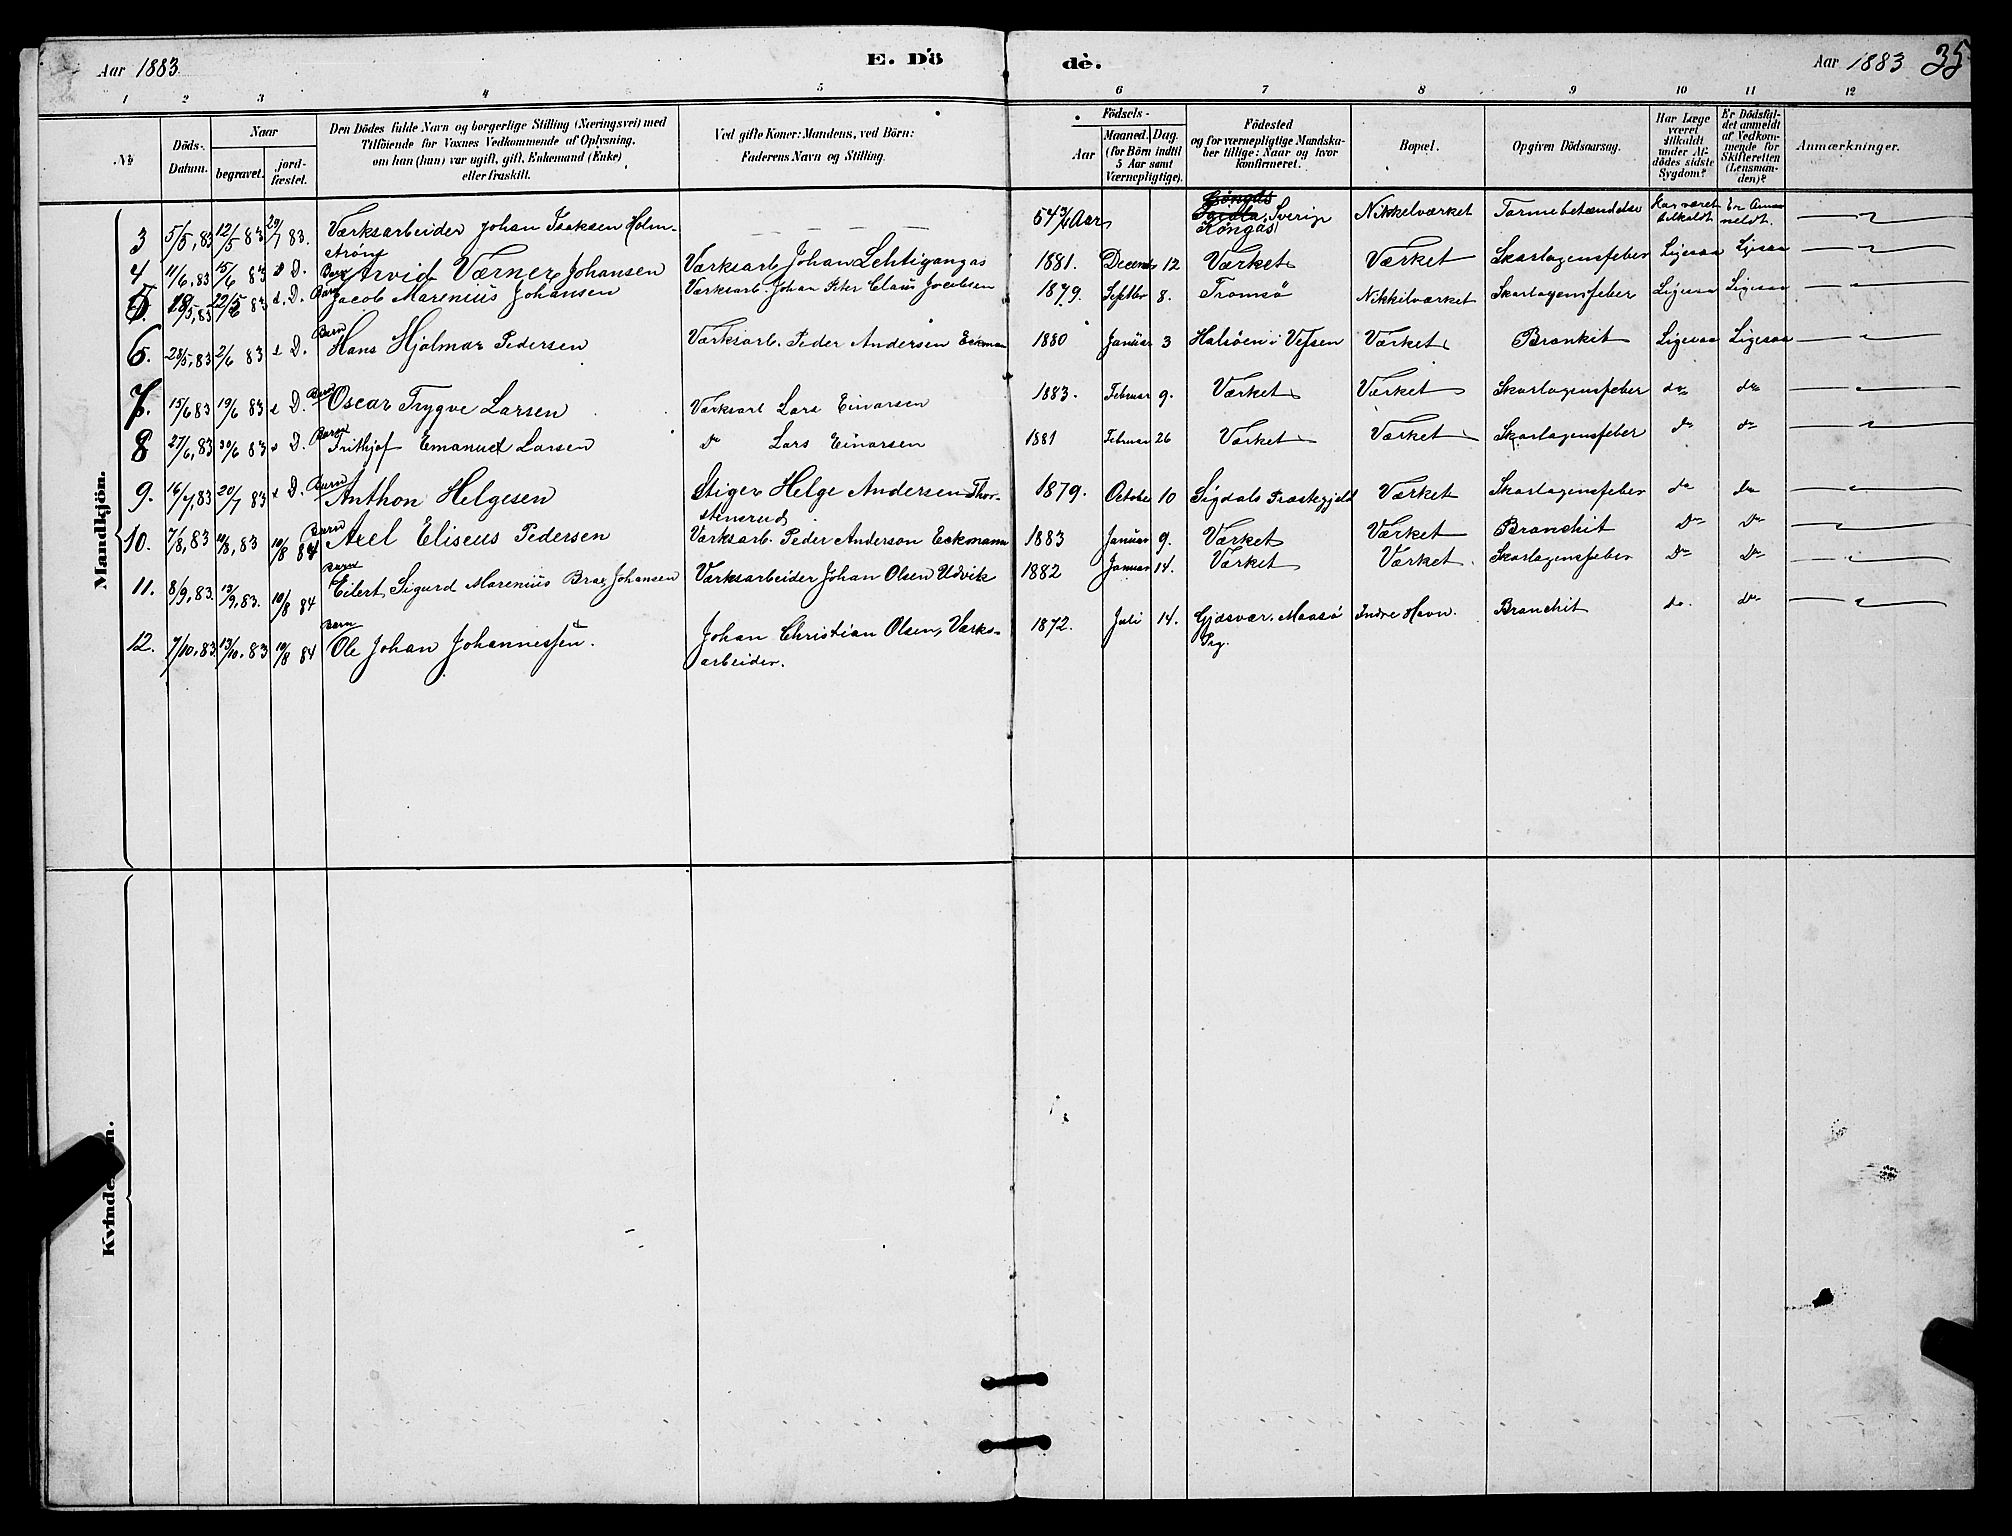 Aar 1883
E. Dö
dè.
Aar 1883 35
1 2 3 4 5 6 7 8 9 10 11 12
№
Döds-Datum.
Naar
begravet.
jord-fæstet.
Den Dödes fulde Navn og borgerlige Stilling (Næringsvei) med
Tilföiende for Voxnes Vedkommende af Oplysning,
om han (hun) var ugift, gift, Enkemand (Enke)
eller fraskilt.
Ved gifte Koner: Mandens, ved Börn:
Faderens Navn og Stilling.
Födsels-
Aar
Maaned. Dag.
(for Börn indtil
5 Aar samt
Værnepligtige).
Födested
og for værnepligtige Mandska-
ber tillige: Naar og hvor
konfirmeret.
Bopæl.
Opgiven Dödsaarsag.
Har Læge
været
tilkaldt
under Af-
dödes sidste
Sygdom?
Er Dödsfal-
det anmeldt
af Vedkom-
mende for
Skifteretten
(Lensman-
den)?
Anmærkninger.
Mandkjön.
3 5/5, 83 12/5 83 20/7 83. Værksarbeider Johan Isaksen Holm- — — — 54 3/4 Aar Sverig Nikkelværket Tarmebetændelse Har været tilkaldt Er Anmeldt
strøm Kongäs
4 11/6, 83 15/6 83 s D. Barn Arvid Værner Johansen Værksarb Johan Lehtigangas 1881. Decemb 12 Værket Værket Skarlagensfeber Ligesaa Ligesaa
5. 18/5, 83 22/5 83 s. D. Barn Jacob Marenius Johansen Værksarb. Johan Peter Claus Jocobsen 1879. Septbr 8. Tromsø Nikkilværket Skarlagensfeber Ligesaa Ligesaa
6. 28/5, 83 2/6 83 s D. Barn Hans Hjalmar Pedersen Værksarb. Peder Andersen Eckman 1880 Januar 3 Halsöen i Vefsen Værket Bronkit Ligesaa Ligesaa
7. 15/6 83 19/6 83 s D. Barn Oscar Trygve Larsen Værksarb Lars Einarsen 1883. Februar 9. Værket Værket Skarlagensfeber do do
8 27/6, 83 30/6 83 s D. Barn Frithjof Emanuel Larsen do Lars Einarsen 1881 Februar 26 Værket Værket Skarlagensfeber do do
9. 16/7, 83 20/7 83 s D. Barn Anthon Helgesen Stiger Helge Andersen Thor- 1879. October 10 Sigdals Præstegjeld Værket Skarlagensfeber do do
stenrud
10. 7/8, 83 11/8, 83 10/8 84 Barn Axel Eliseus Pedersen Værksarb. Peder Anderson Eckmann 1883 Januar 9. Værket Værket Bronchit Do Do
11. 8/9, 83. 13/9, 83. 10/8 84 Barn Eilert Sigurd Marenius Brox Johansen Værksarbeider Johan Olsen Udvik 1882 Januar 14. Værket Værket. Skarlagensfeber Do Do
12. 7/10, 83. 13/10, 83 10/8 84 Barn Ole Johan Johannessen. Johan Christian Olsen, Værks- 1872. Juli 14. Gjæsvær, Maasø Indre Havn. Bronchit do. do
arbeider. Prg.